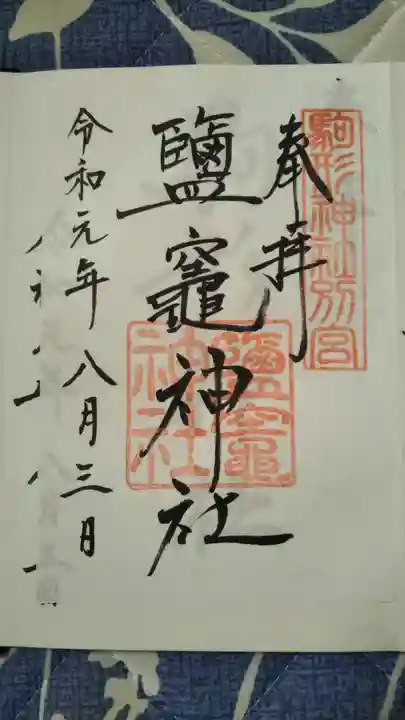 駒形神社別宮
奉拝
鹽竈神社
鹽竈神社
令和元年八月三日